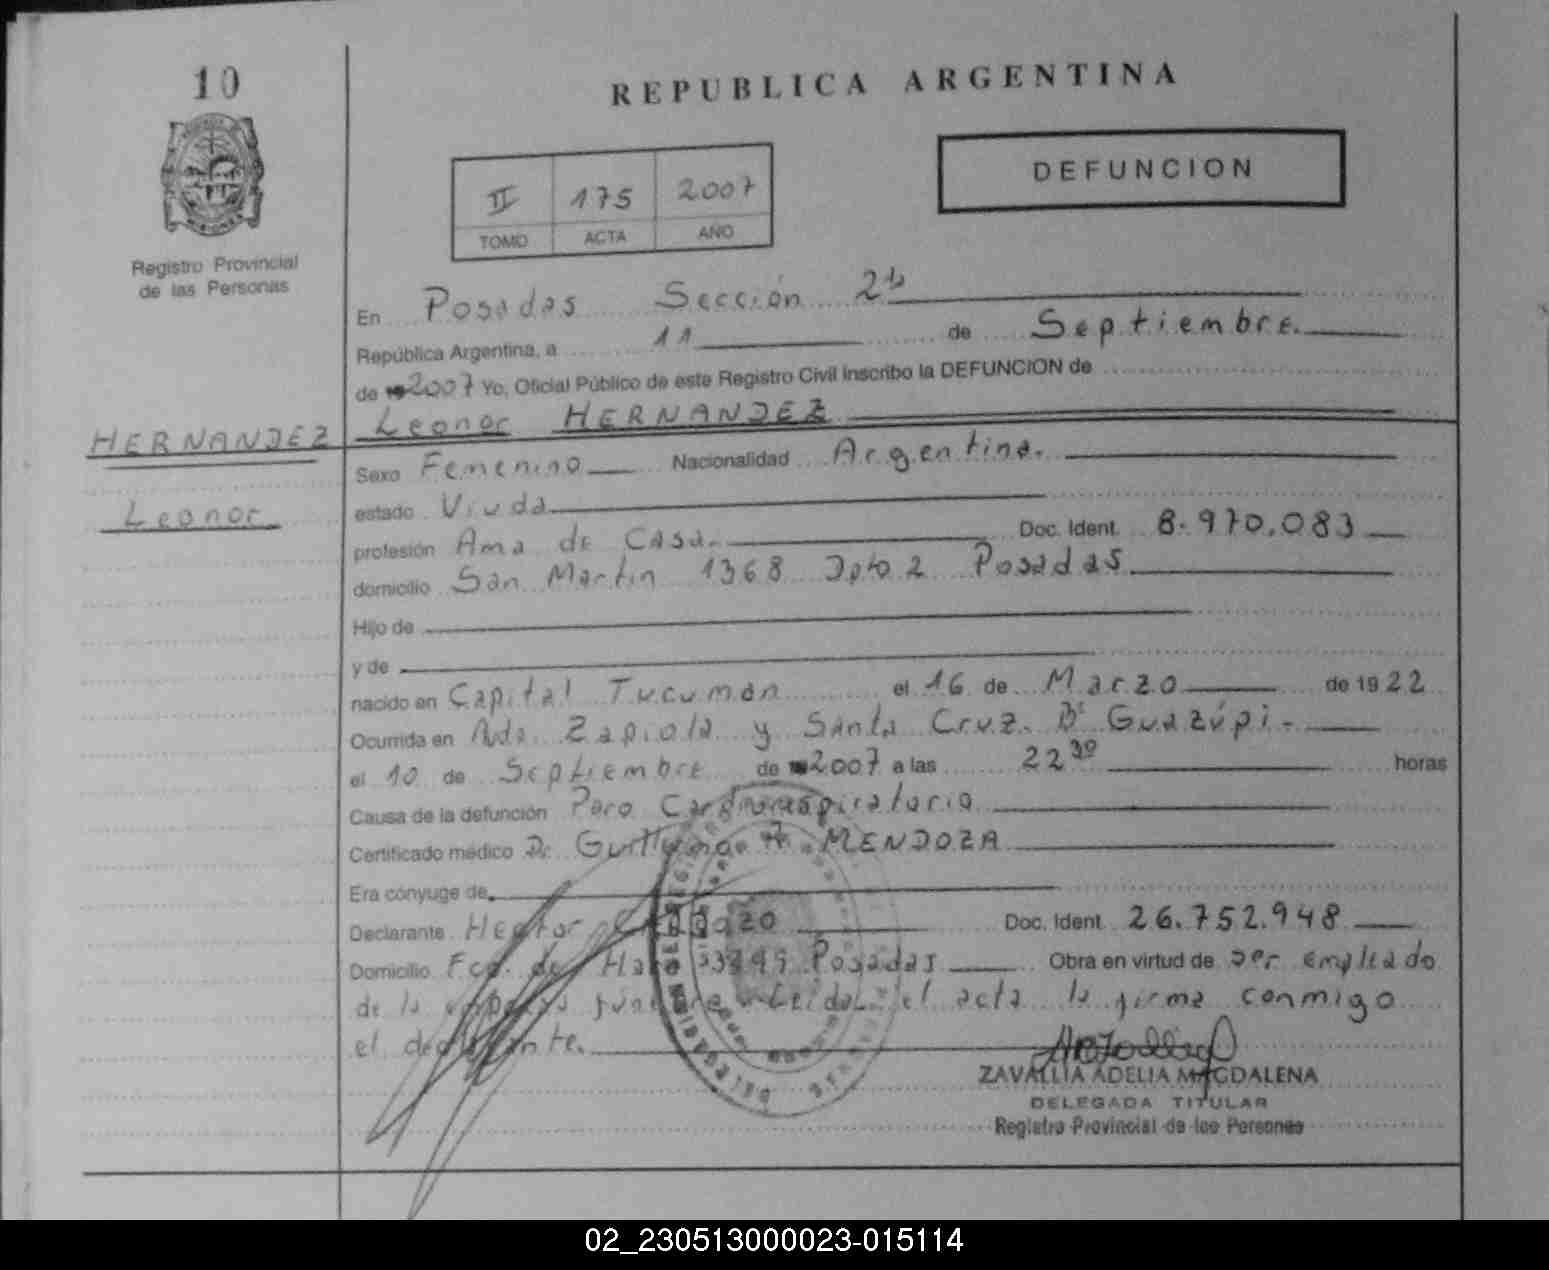 10
REPUBLICA ARGENTINA
DEFUNCION
II 175 2007
TOMO ACTA AÑO
Registro Provincial
de las Personas
En Posadas Sección 2ª
República Argentina, a 11 de Septiembre.
de 2007 Yo, Oficial Público de este Registro Civil inscribo la DEFUNCION de
HERNANDEZ Leonor HERNANDEZ
Sexo Femenino Nacionalidad Argentina.
Leonor
estado Viuda
profesión Ama de Casa. Doc. Ident. 8.970.083
domicilio San Martin 1368 Dpto 2 Posadas
Hijo de
y de
nacido en Capital Tucumán el 16 de Marzo de 1922
Ocurrida en Avda. Zapiola y Santa Cruz. Bº Guazúpi.-
el 10 de Septiembre de 2007 a las 22 30 horas
Causa de la defunción Paro Cardiorespiratorio
Certificado médico Dr. Guillermo A. MENDOZA
Era cónyuge de
Declarante Hector Doc. Ident. 26.752.948
Domicilio Fco. de Haro Posadas Obra en virtud de ser empleado
de la empresa Leída el acta la firma conmigo
el declarante.
ZAVALLIA ADELIA MAGDALENA
DELEGADA TITULAR
Registro Provincial de los Personas
02_230513000023-015114